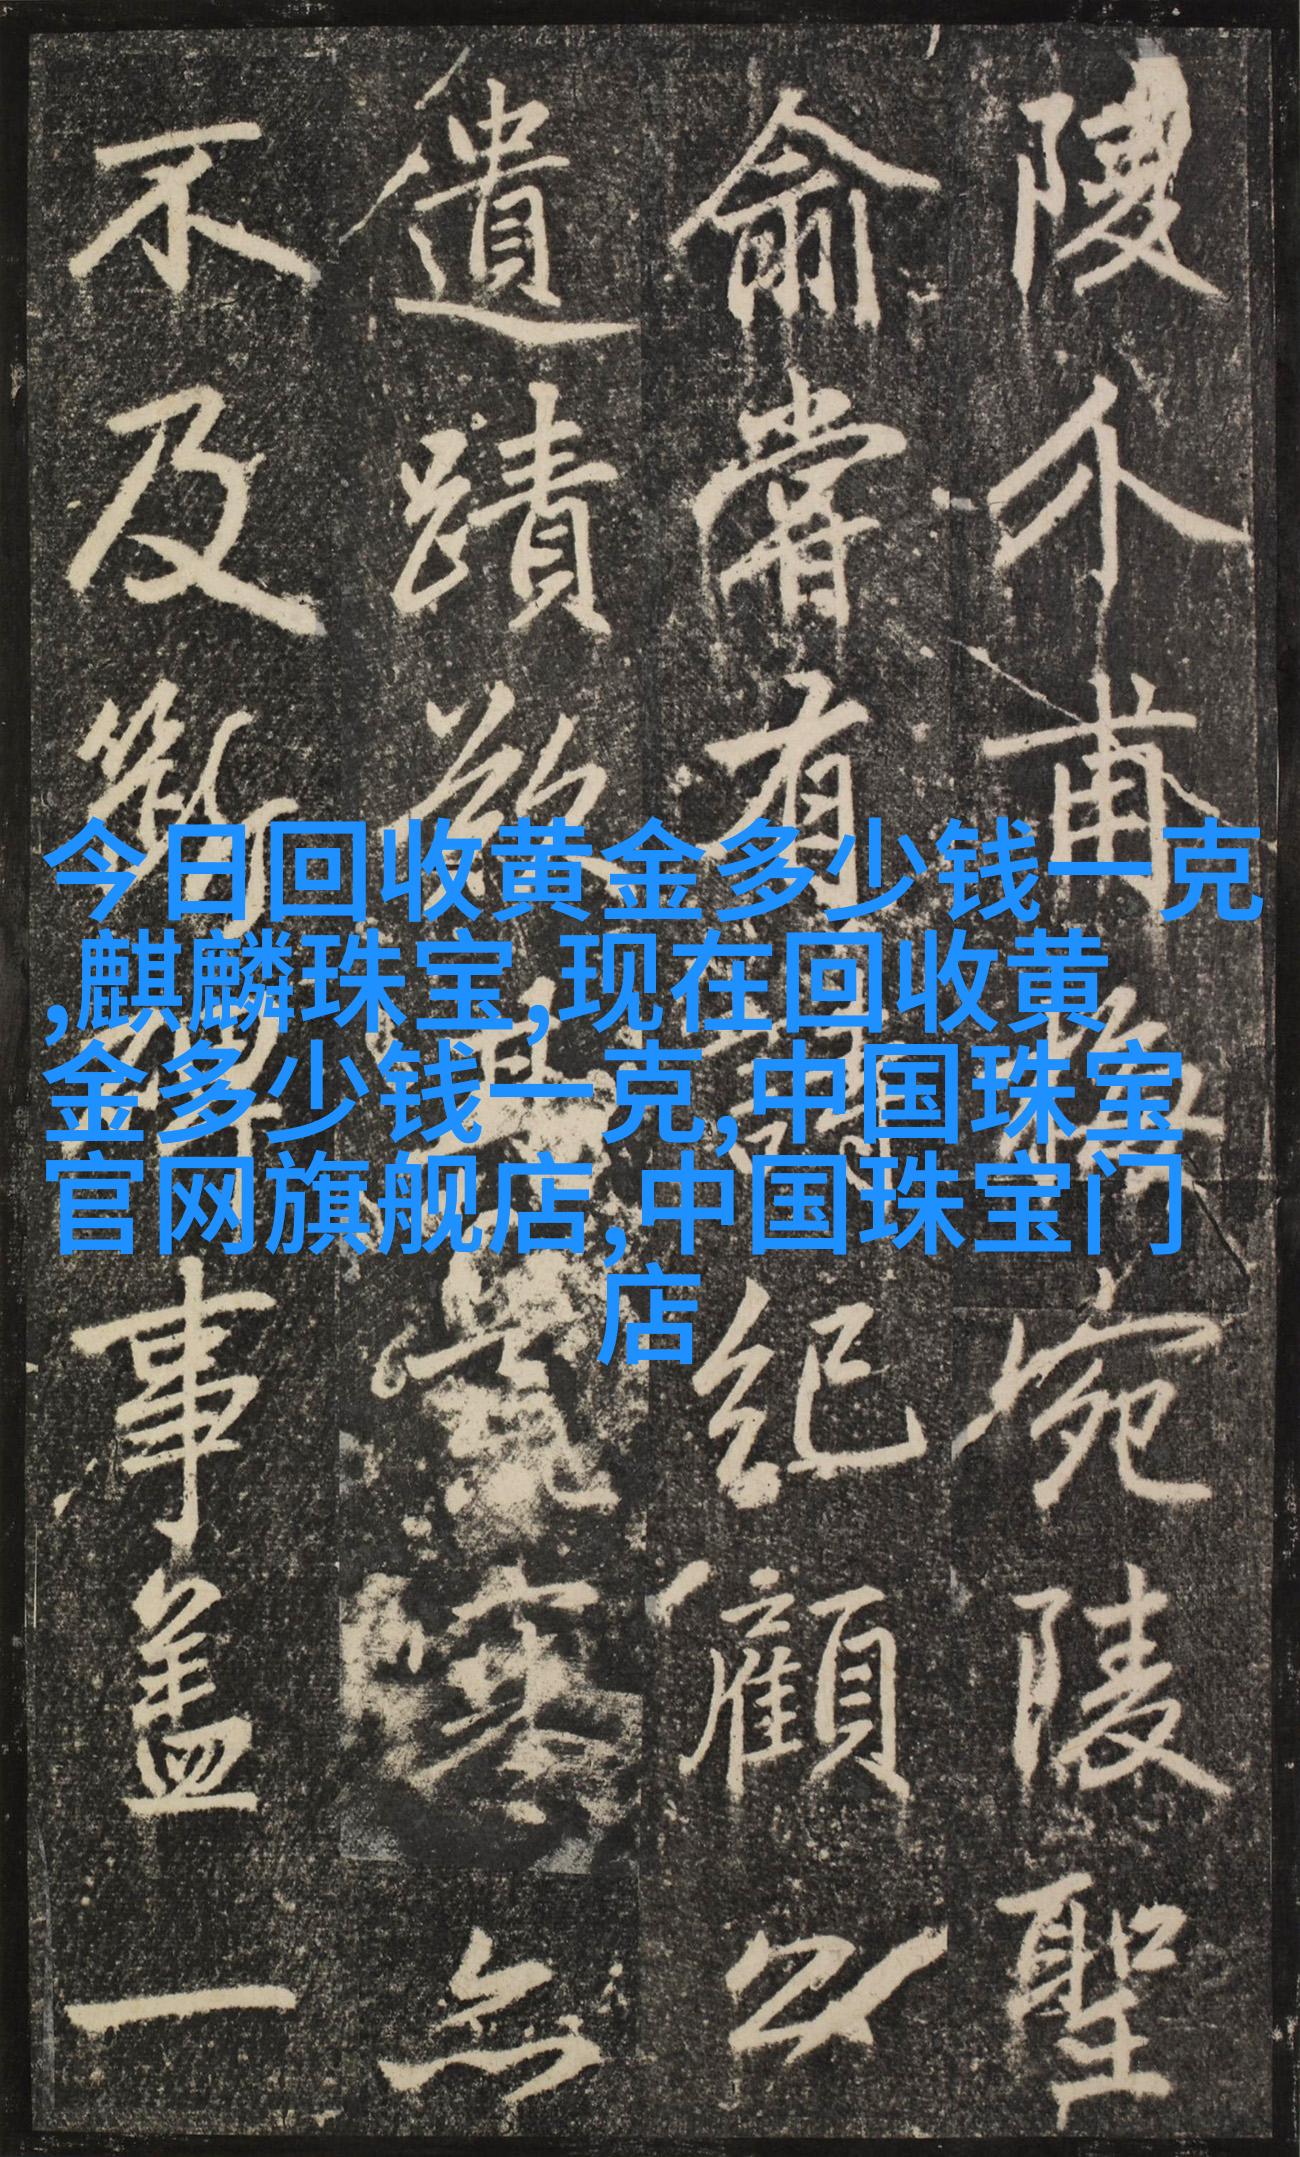 今日回收黄金多少钱一克
,麒麟珠宝,现在回收黄
金多少钱一克,中国珠宝
官网旗舰店,中国珠宝门
店
陵介甫
宛陵聖
俞嘗有
紀顧以
遺蹟
無
不及
事蓋一